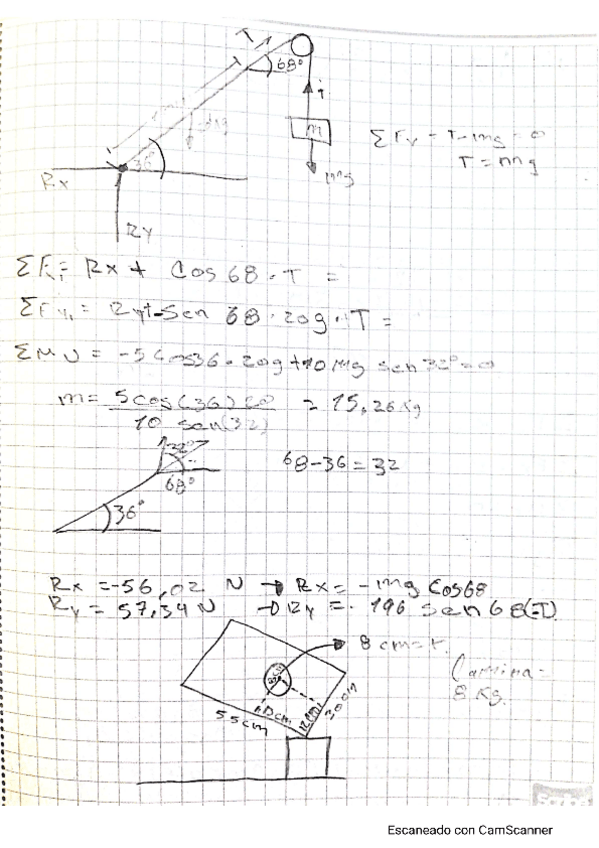 T
68°
T
m
mg
36°
Rx
Ry
ΣFy = T - mg = 0
T = mg
ΣFx = Rx + Cos 68 . T =
ΣFy = Ry + Sen 68 . 20g . T =
ΣMO = -5 Cos 36 . 20g + 10 mg sen 32° = 0
m = 5 cos(36) 20 / 10 sen(32) = 15,26 Kg
32°
68°
36°
68 - 36 = 32
Rx = -56,02 N → Rx = -mg Cos 68
Ry = 57,34 N → Ry = 196 sen 68 (-T)
8 cm = r.
8 cm
10 cm
12 cm
30 cm
55 cm
Lamina =
8 Kg.
Escaneado con CamScanner